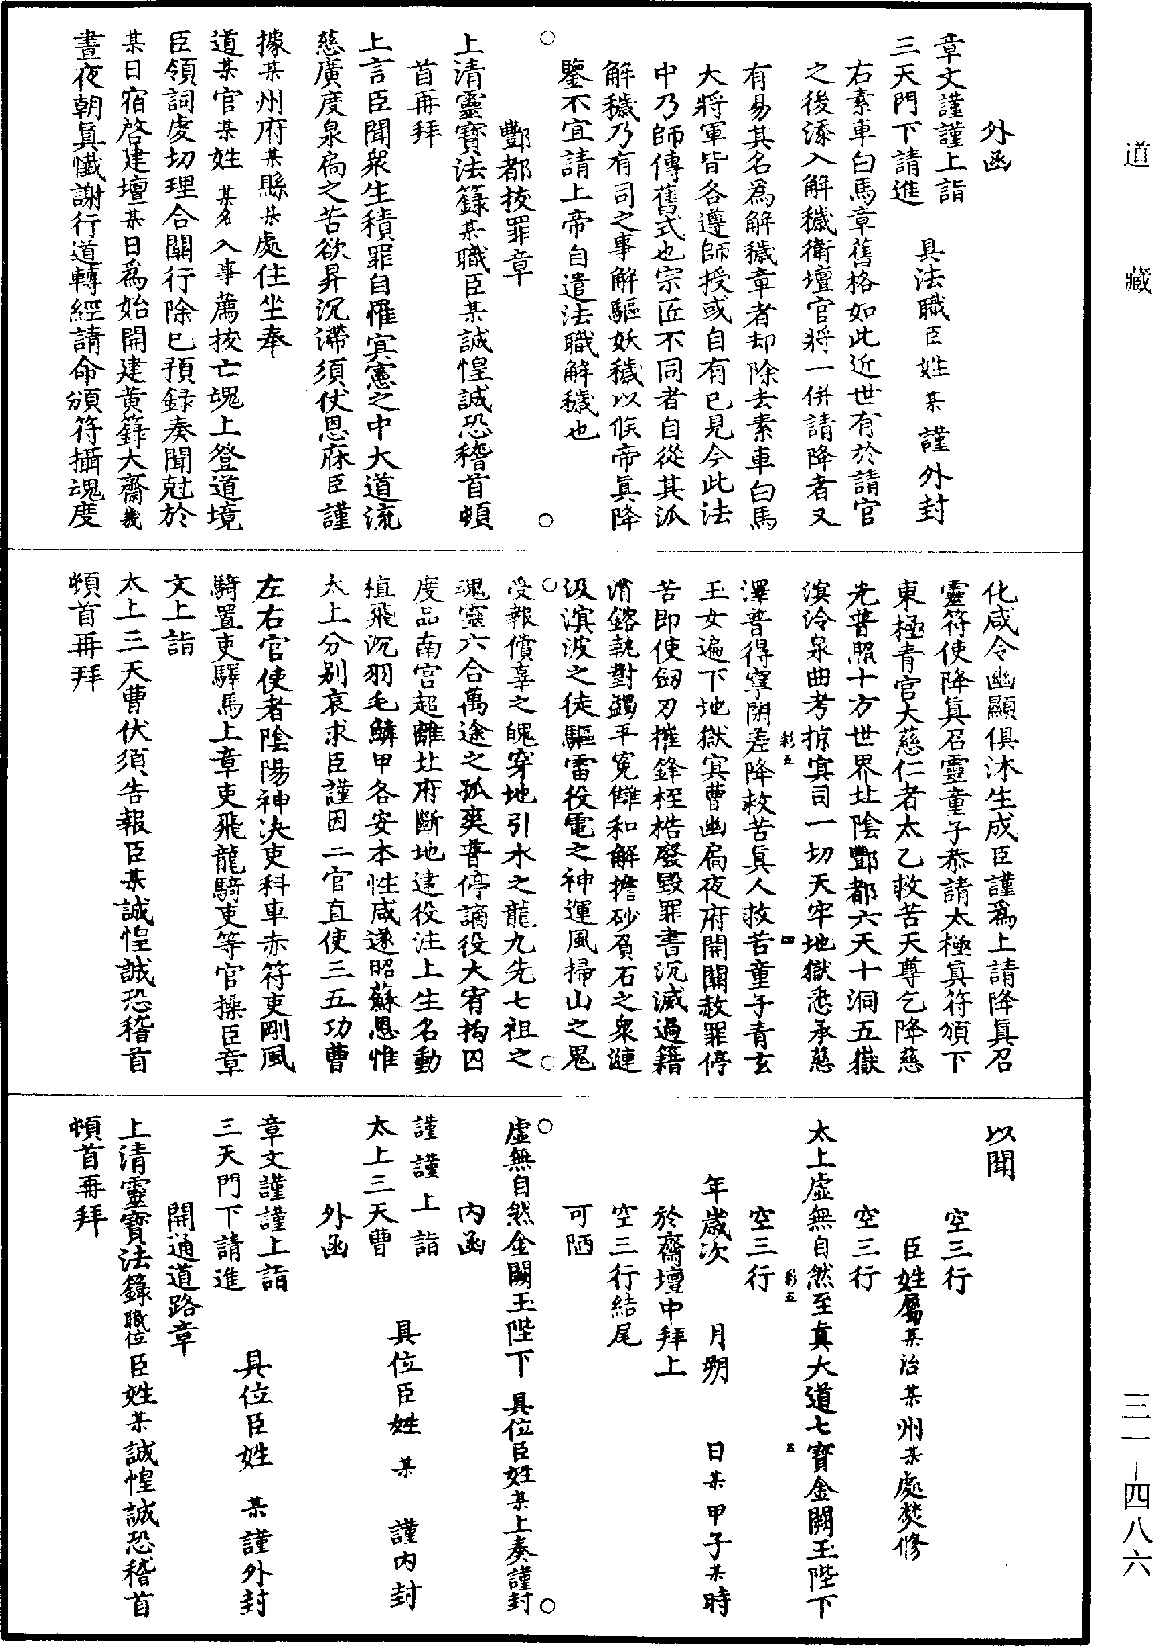 道藏
三一-四八六
外函
章文謹謹上詣
三天門下請進　具法職臣姓某謹外封
右素車白馬章舊格如此近世有於請官
之後添入解穢衛壇官將一併請降者又
有易其名為解穢章者却除去素車白馬
大將軍皆各遵師授或自有已見今此法
中乃師傳舊式也宗匠不同者自從其派
解穢乃有司之事解驅妖穢以候帝真降
鑒不宜請上帝自遣法職解穢也
酆都拔罪章
上清靈寶法籙某職臣某誠惶誠恐稽首頓
首再拜
上言臣聞衆生積罪自罹冥憲之中大道流
慈廣度泉扃之苦欲昇沉滯須伏恩庥臣謹
據某州府某縣某處住坐奉
道某官某姓某名入事薦拔亡魂上登道境
臣領詞虔切理合關行除已預録奏聞尅於
某日宿啓建壇某日為始開建黄籙大齋幾
晝夜朝真懺謝行道轉經請命頒符攝魂度
化咸令幽顯俱沐生成臣謹為上請降真召
靈符使降真召靈童子恭請太極真符頒下
東極青宮大慈仁者太乙救苦天尊乞降慈
光普照十方世界北陰酆都六天十洞五嶽
溟泠泉曲考掠冥司一切天牢地獄悉承慈
澤普得寧閑差降救苦真人救苦童子青玄
玉女遍下地獄冥曹幽扃夜府開關赦罪停
苦即使劒刃摧鋒桎梏廢毀罪書沉滅過籍
消鎔執對蠲平寃讎和解擔砂負石之衆漣
汲溟波之徒驅雷役電之神運風掃山之鬼
受報償辜之魄穿地引水之龍九先七祖之
魂靈六合萬途之孤爽普停謫役大宥拘囚
度品南宮超離北府斷地逮役注上生名動
植飛沉羽毛鱗甲各安本性咸遂昭蘇恩惟
太上分别哀求臣謹因二官直使三五功曹
左右官使者陰陽神決吏科車赤符吏剛風
騎置吏驛馬上章吏飛龍騎吏等官操臣章
文上詣
太上三天曹伏須告報臣某誠惶誠恐稽首
頓首再拜
以聞
空三行
臣姓屬某治某州某處焚修
空三行
太上虛無自然至真大道七寶金闕玉陛下
空三行
年歲次　月朔　日某甲子某時
於齋壇中拜上
空三行結尾
可陋
虛無自然金闕玉陛下　具位臣姓某上奏謹封
内函
謹謹上詣
太上三天曹　具位臣姓　某　謹内封
外函
章文謹謹上詣
三天門下請進　具位臣姓　某謹外封
開通道路章
上清靈寶法籙職位臣姓某誠惶誠恐稽首
頓首再拜